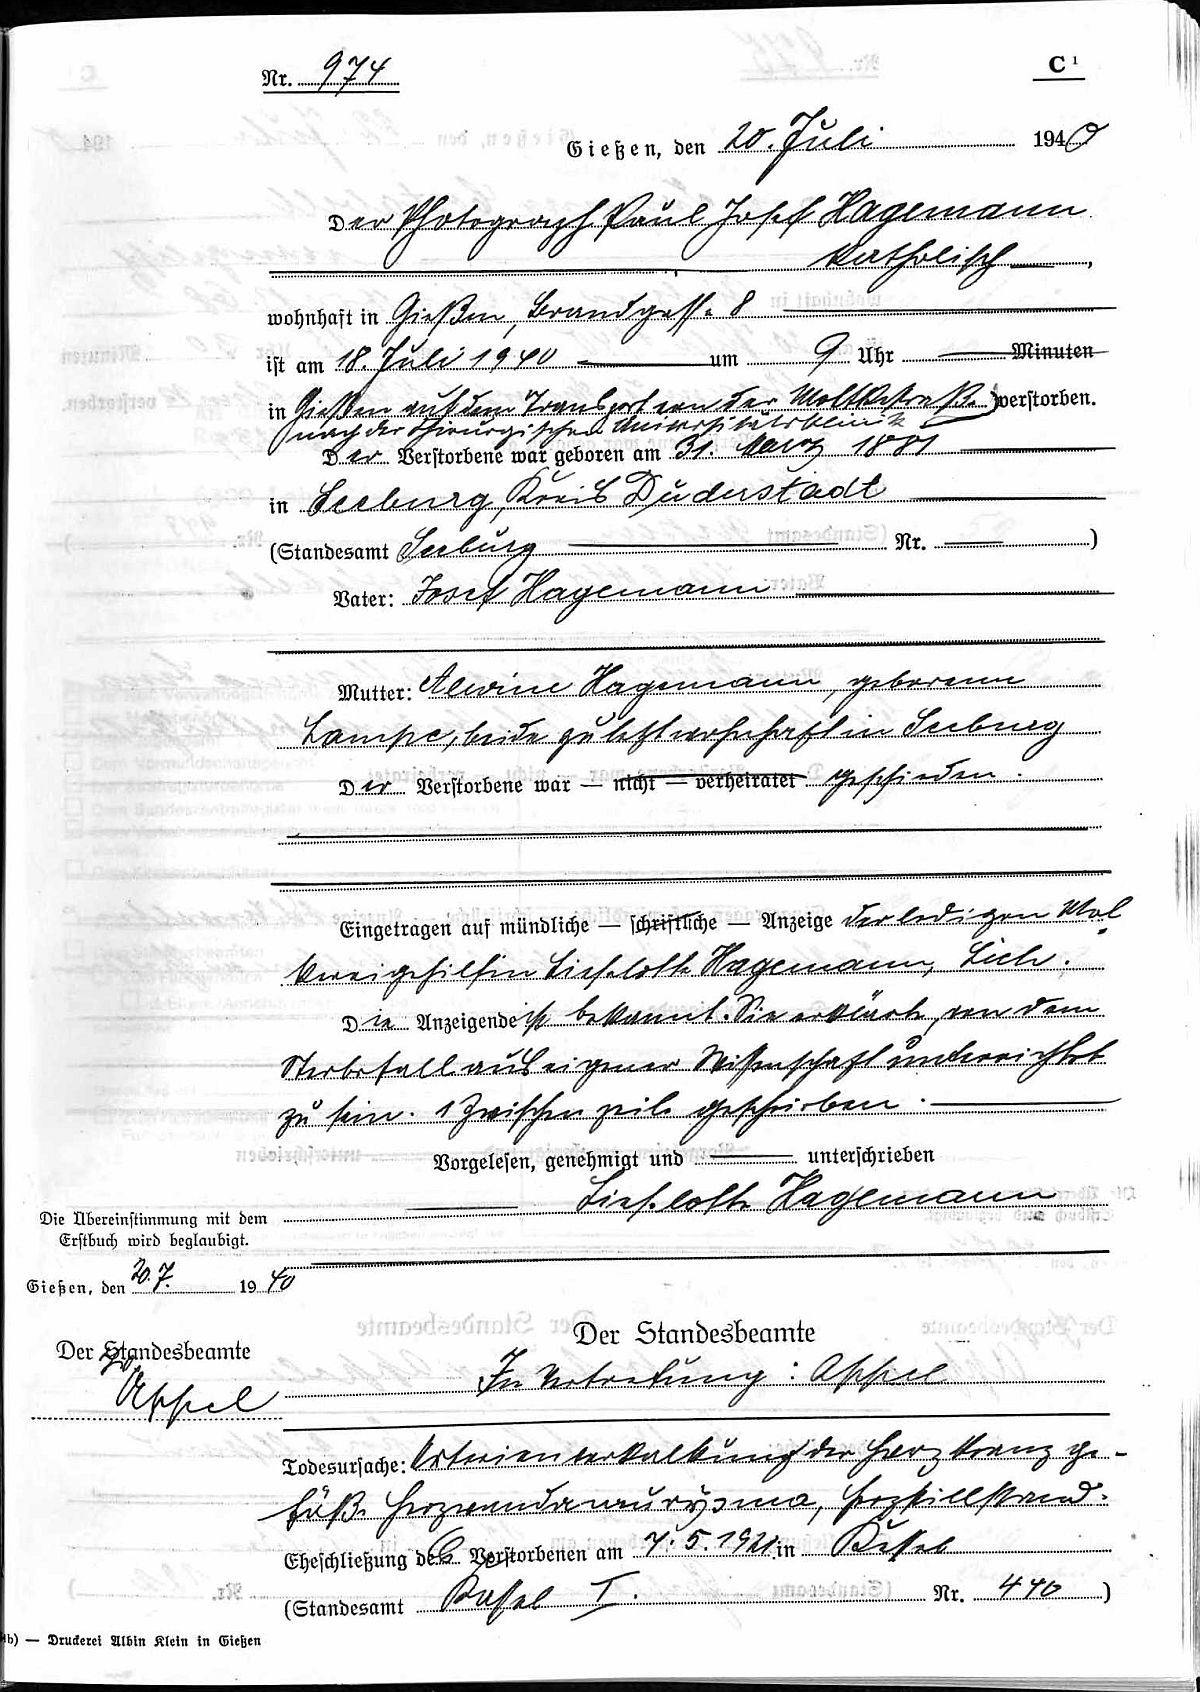 Nr. 974
C 1
Gießen, den 20. Juli 1940
Der Photograph Paul Josef Hagemann
katholisch,
wohnhaft in Gießen, Brandgasse 8
ist am 18. Juli 1940 um 9 Uhr Minuten
in Gießen auf dem Transport von der Moltkestraße verstorben.
nach der Chirurgischen Universitätsklinik
Der Verstorbene war geboren am 31. März 1881
in Seeburg, Kreis Duderstadt
(Standesamt Seeburg Nr. )
Vater: Josef Hagemann
Mutter: Alwine Hagemann, geborene
Lampe, beide zuletzt wohnhaft in Seeburg
Der Verstorbene war — nicht — verheiratet geschieden.
Eingetragen auf mündliche — schriftliche — Anzeige der ledigen Mol-
kereigehilfin Lieselotte Hagemann, Lich.
Die Anzeigende ist bekannt. Sie erklärte, von dem
Sterbefall aus eigener Wissenschaft unterrichtet
zu sein. 1 Zwischenzeile geschrieben.
Vorgelesen, genehmigt und unterschrieben
Lieselotte Hagemann
Die Übereinstimmung mit dem
Erstbuch wird beglaubigt.
Gießen, den 20.7. 1940
Der Standesbeamte
Appel
Der Standesbeamte
In Vertretung: Appel
Todesursache: Arterienverkalkung der Herzkranzge-
fäße Herzwandaneurysma, Herzstillstand.
Eheschließung des Verstorbenen am 7.5.1921 in Kassel
(Standesamt Kassel I. Nr. 440)
— Druckerei Albin Klein in Gießen